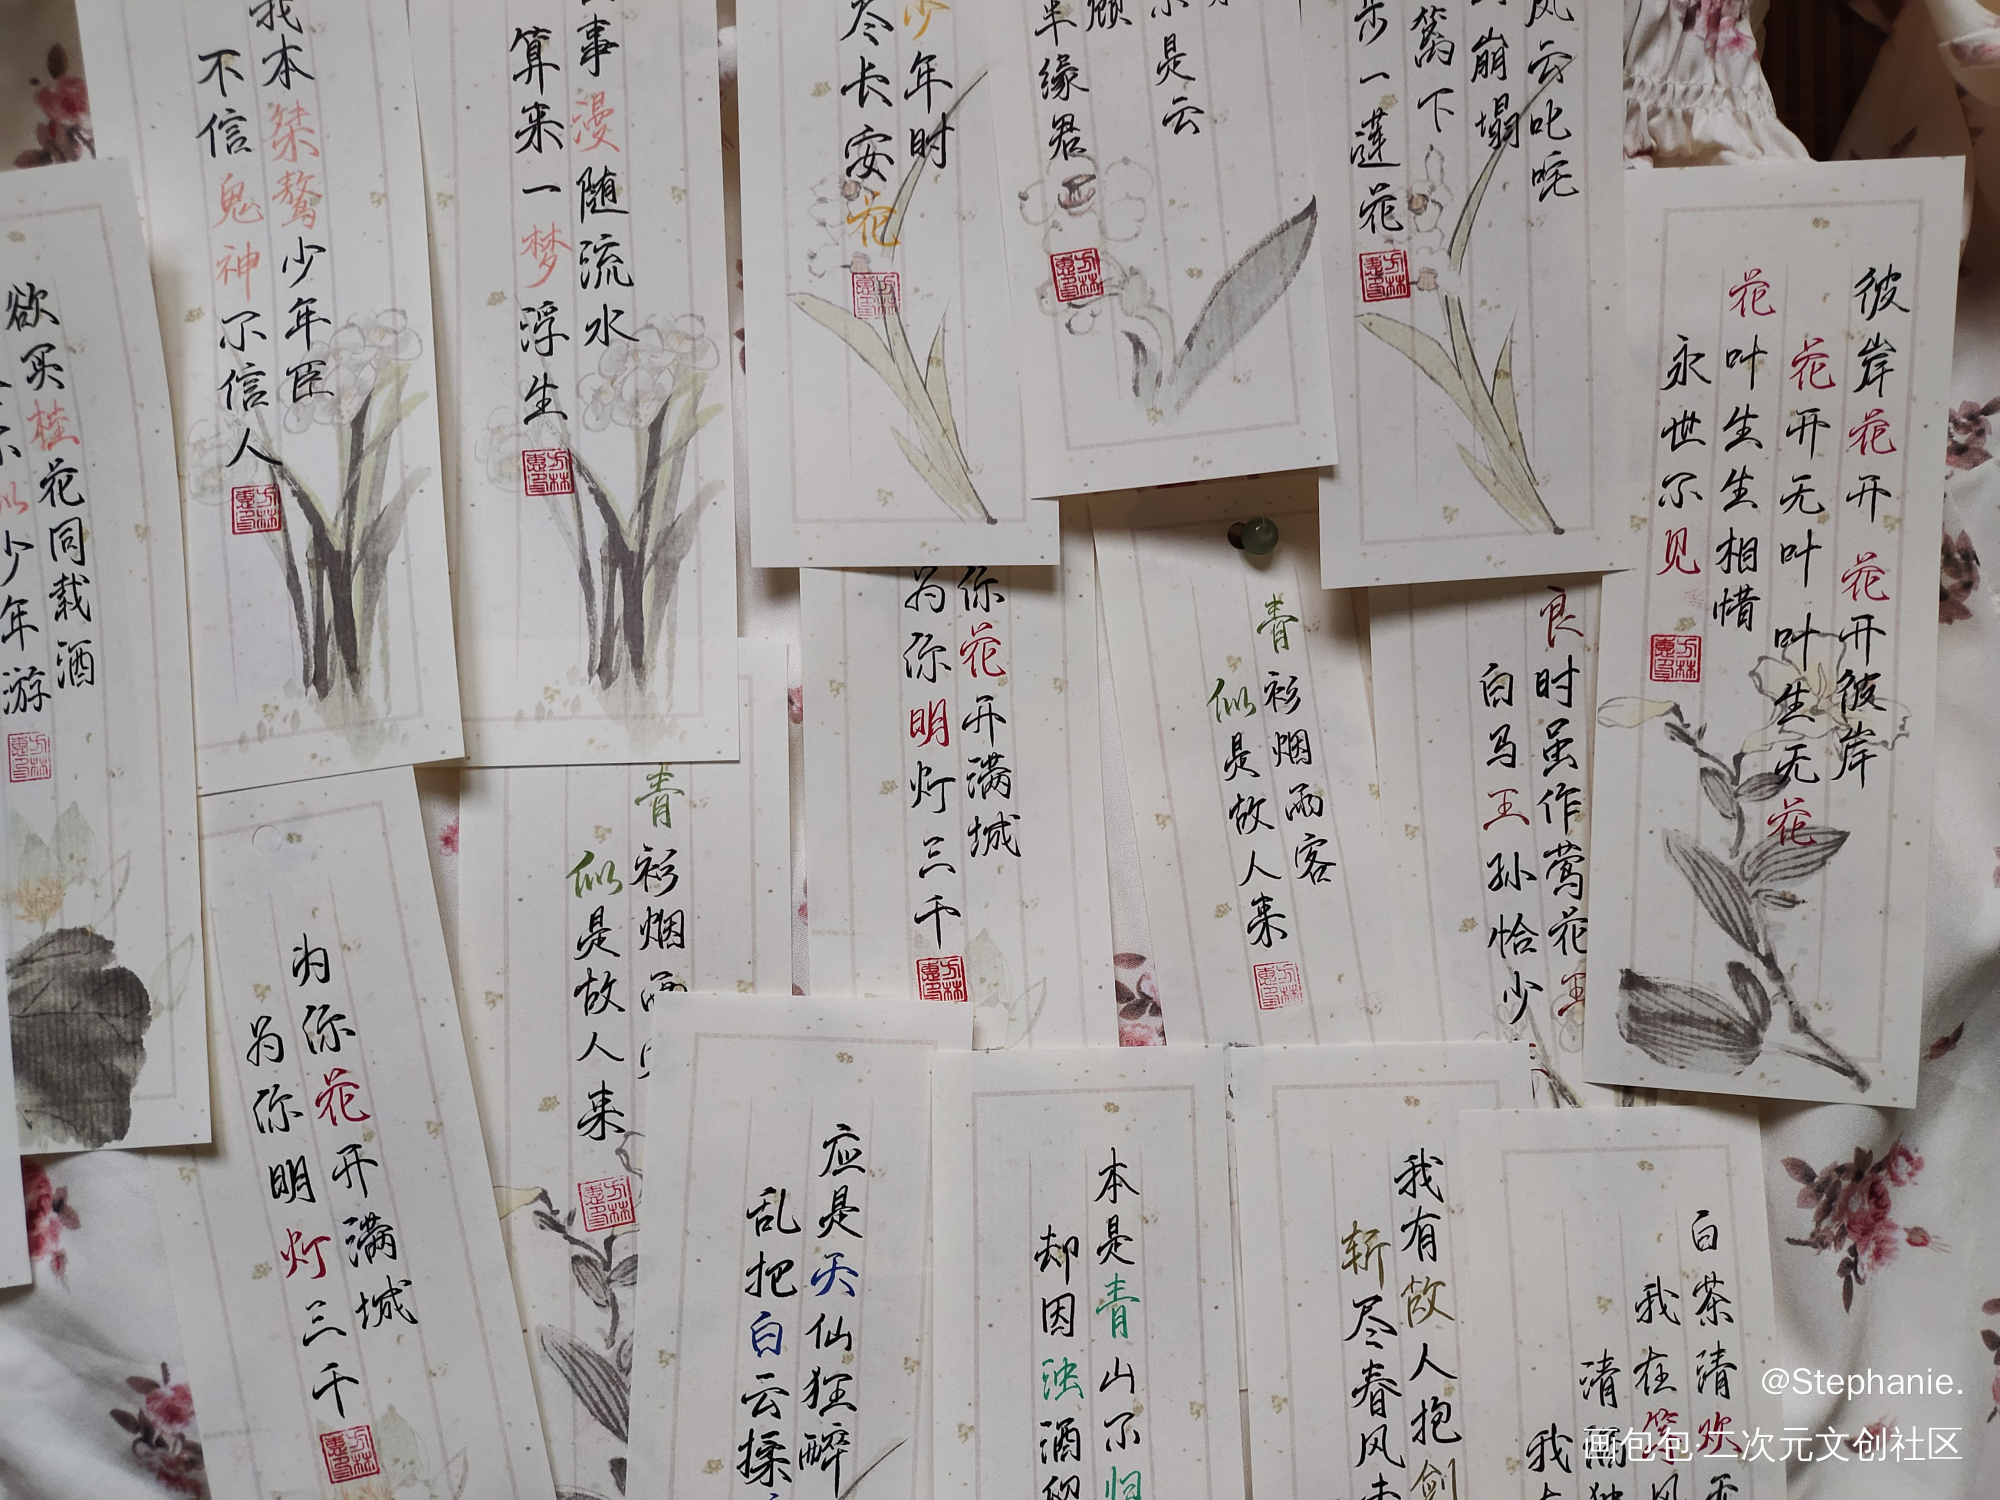 欲买桂花同载酒
少年游
我本桀骜少年臣
不信鬼神不信人
事漫随流水
算来一梦浮生
少年时
尽长安花
不是云
半缘君
风云叱咤
崩塌
篱下
步一莲花
彼岸花开 花开彼岸
花开无叶 叶生无花
花叶生生相惜
永世不见
为你花开满城
为你明灯三千
青衫烟雨
似是故人来
你花开满城
为你明灯三千
青衫烟雨客
似是故人来
良时虽作莺花王
白马王孙恰少
应是天仙狂醉
乱把白云揉
本是青山不归
却因浊酒
我有故人抱剑
斩尽春风
白茶清欢无
我在等风
清酒
我
@Stephanie.
画包包·二次元文创社区